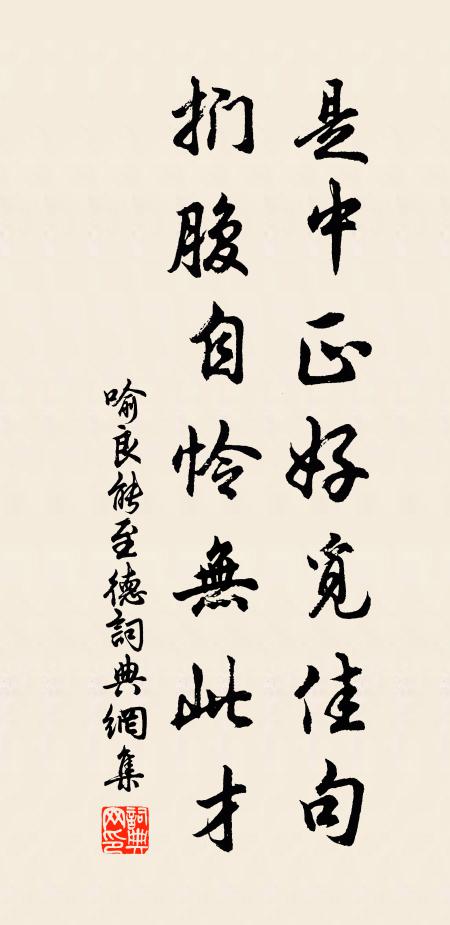 是中正好覓佳句
捫腹自怜無此才
喻良能至德詞典網集
詞典網印